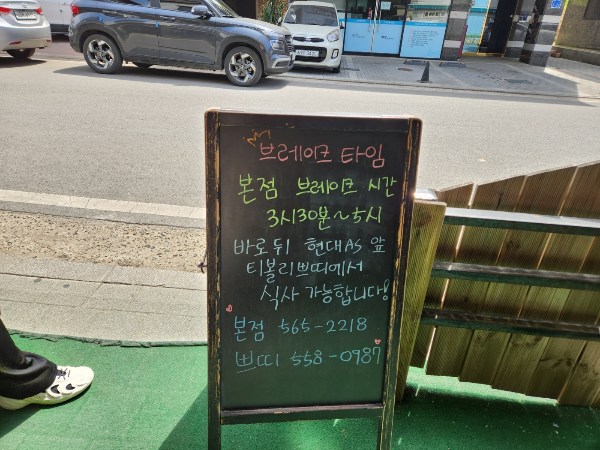 브레이크 타임
본점 브레이크 시간
3시30분~5시
바로뒤 현대AS 앞
티볼리쁘띠에서
식사 가능합니다!
본점 565-2218
쁘띠 558-0987